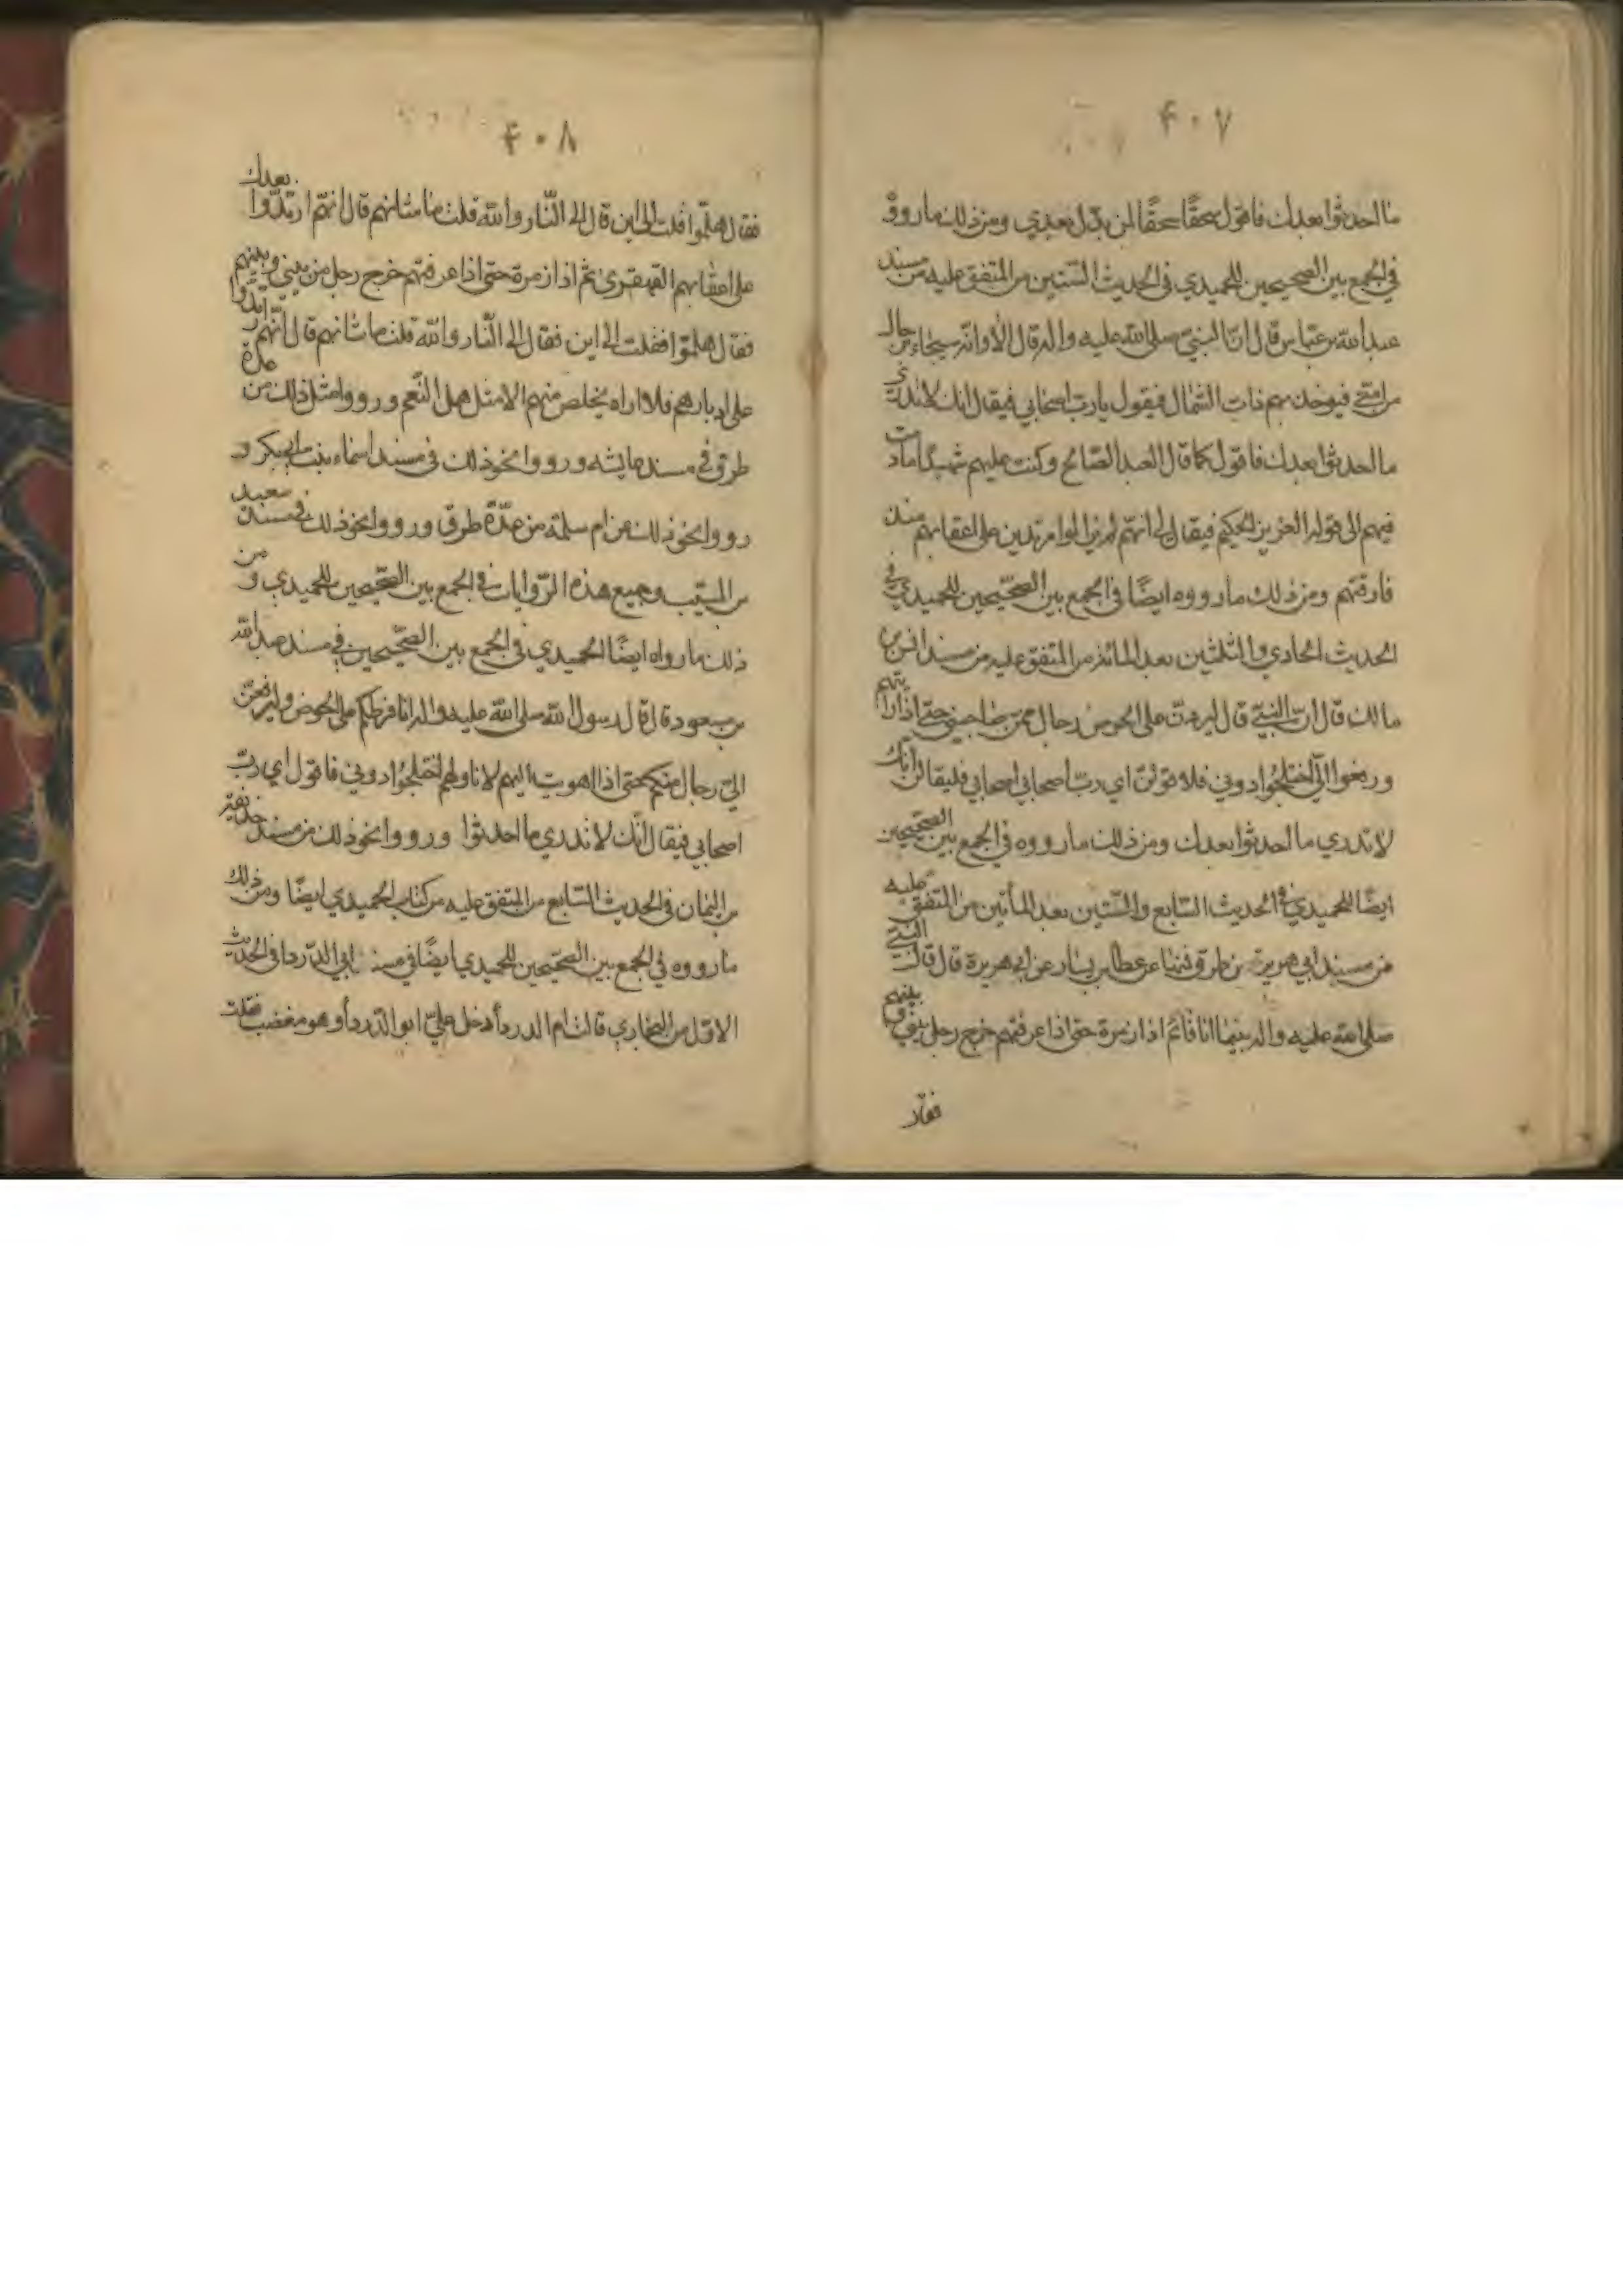 ۴۰۷
ما احدثوا بعدك فاقول سحقًا سحقًا لمن بدّل بعدي ومن ذلك ما رووه
في الجمع بين الصحيحين للحميدي في الحديث الستّين من المتفق عليه من مسند
عبد الله بن عبّاس قال انّ النبيّ صلى الله عليه واله قال الا وانّه سيجاء برجال
من امّتي فيؤخذ بهم ذات الشمال فيقول يا ربّ اصحابي فيقال انك لا تدري
ما احدثوا بعدك فاقول كما قال العبد الصّالح وكنت عليهم شهيدًا ما دمت
فيهم الى قوله العزيز الحكيم فيقال لي انّهم لم يزالوا مرتدين على اعقابهم منذ
فارقتهم ومن ذلك ما رووه ايضًا في الجمع بين الصّحيحين للحميدي في
الحديث الحادي والثلثين بعد المائة من المتفق عليه من مسند انس بن
مالك قال انّ النبيّ قال ليردن على الحوض رجال ممّن صاحبني حتى اذا رايتهم
ورفعوا اليّ اختلجوا دوني فلاقولنّ اي ربّ اصحابي اصحابي فليقالن انّك
لا تدري ما احدثوا بعدك ومن ذلك ما رووه في الجمع بين الصحيحين
ايضًا للحميدي في الحديث السّابع والسّتين بعد المأتين من المتفق عليه
من مسند ابي هريرة من طرق فمنها عن عطا بن يسار عن ابي هريرة قال قال النبيّ
صلى الله عليه واله بينما انا قائم اذا زمرة حتى اذا عرفتهم خرج رجل بيني وبينهم
فقال
۴۰۸
فقال هلمّوا قلت الى اين قال الى النّار والله قلت ما شانهم قال انهّم ارتدّوا بعدك
على اعقابهم القهقرى ثم اذا زمرة حتى اذا عرفتهم خرج رجل من بيني وبينهم
فقال هلموا فقلت الى اين فقال الى النّار والله قلت ما شانهم قال انّهم ارتدّوا
على ادبارهم فلا اراه يخلص منهم الا مثل همل النّعم ورووا مثل ذلك من عدة
طرق في مسند عايشه ورووا نحو ذلك في مسند اسماء بنت ابي بكر و
رووا نحو ذلك عن ام سلمة من عدّة طرق ورووا نحو ذلك في مسند سعيد
بن المسيّب وجميع هذه الرّوايات في الجمع بين الصّحيحين للحميدي و من
ذلك ما رواه ايضًا الحميدي في الجمع بين الصّحيحين في مسند عبد الله
بن مسعود قال قال رسول الله صلى الله عليه واله انا فرطكم على الحوض وليرفعنّ
اليّ رجال منكم حتى اذا اهويت اليهم لاناولهم اختلجوا دوني فاقول اي ربّ
اصحابي فيقال انّك لا تدري ما احدثوا ورووا نحو ذلك من مسند حذيفة
بن اليمان في الحديث السّابع من المتفق عليه من كتاب الحميدي ايضًا ومن ذلك
ما رووه في الجمع بين الصّحيحين للحميدي ايضًا في مسند ابي الدّردا في الحديث
الاوّل من البخاري قالت ام الدردأ دخل عليّ ابو الدّردأ وهو مغضب فقلت